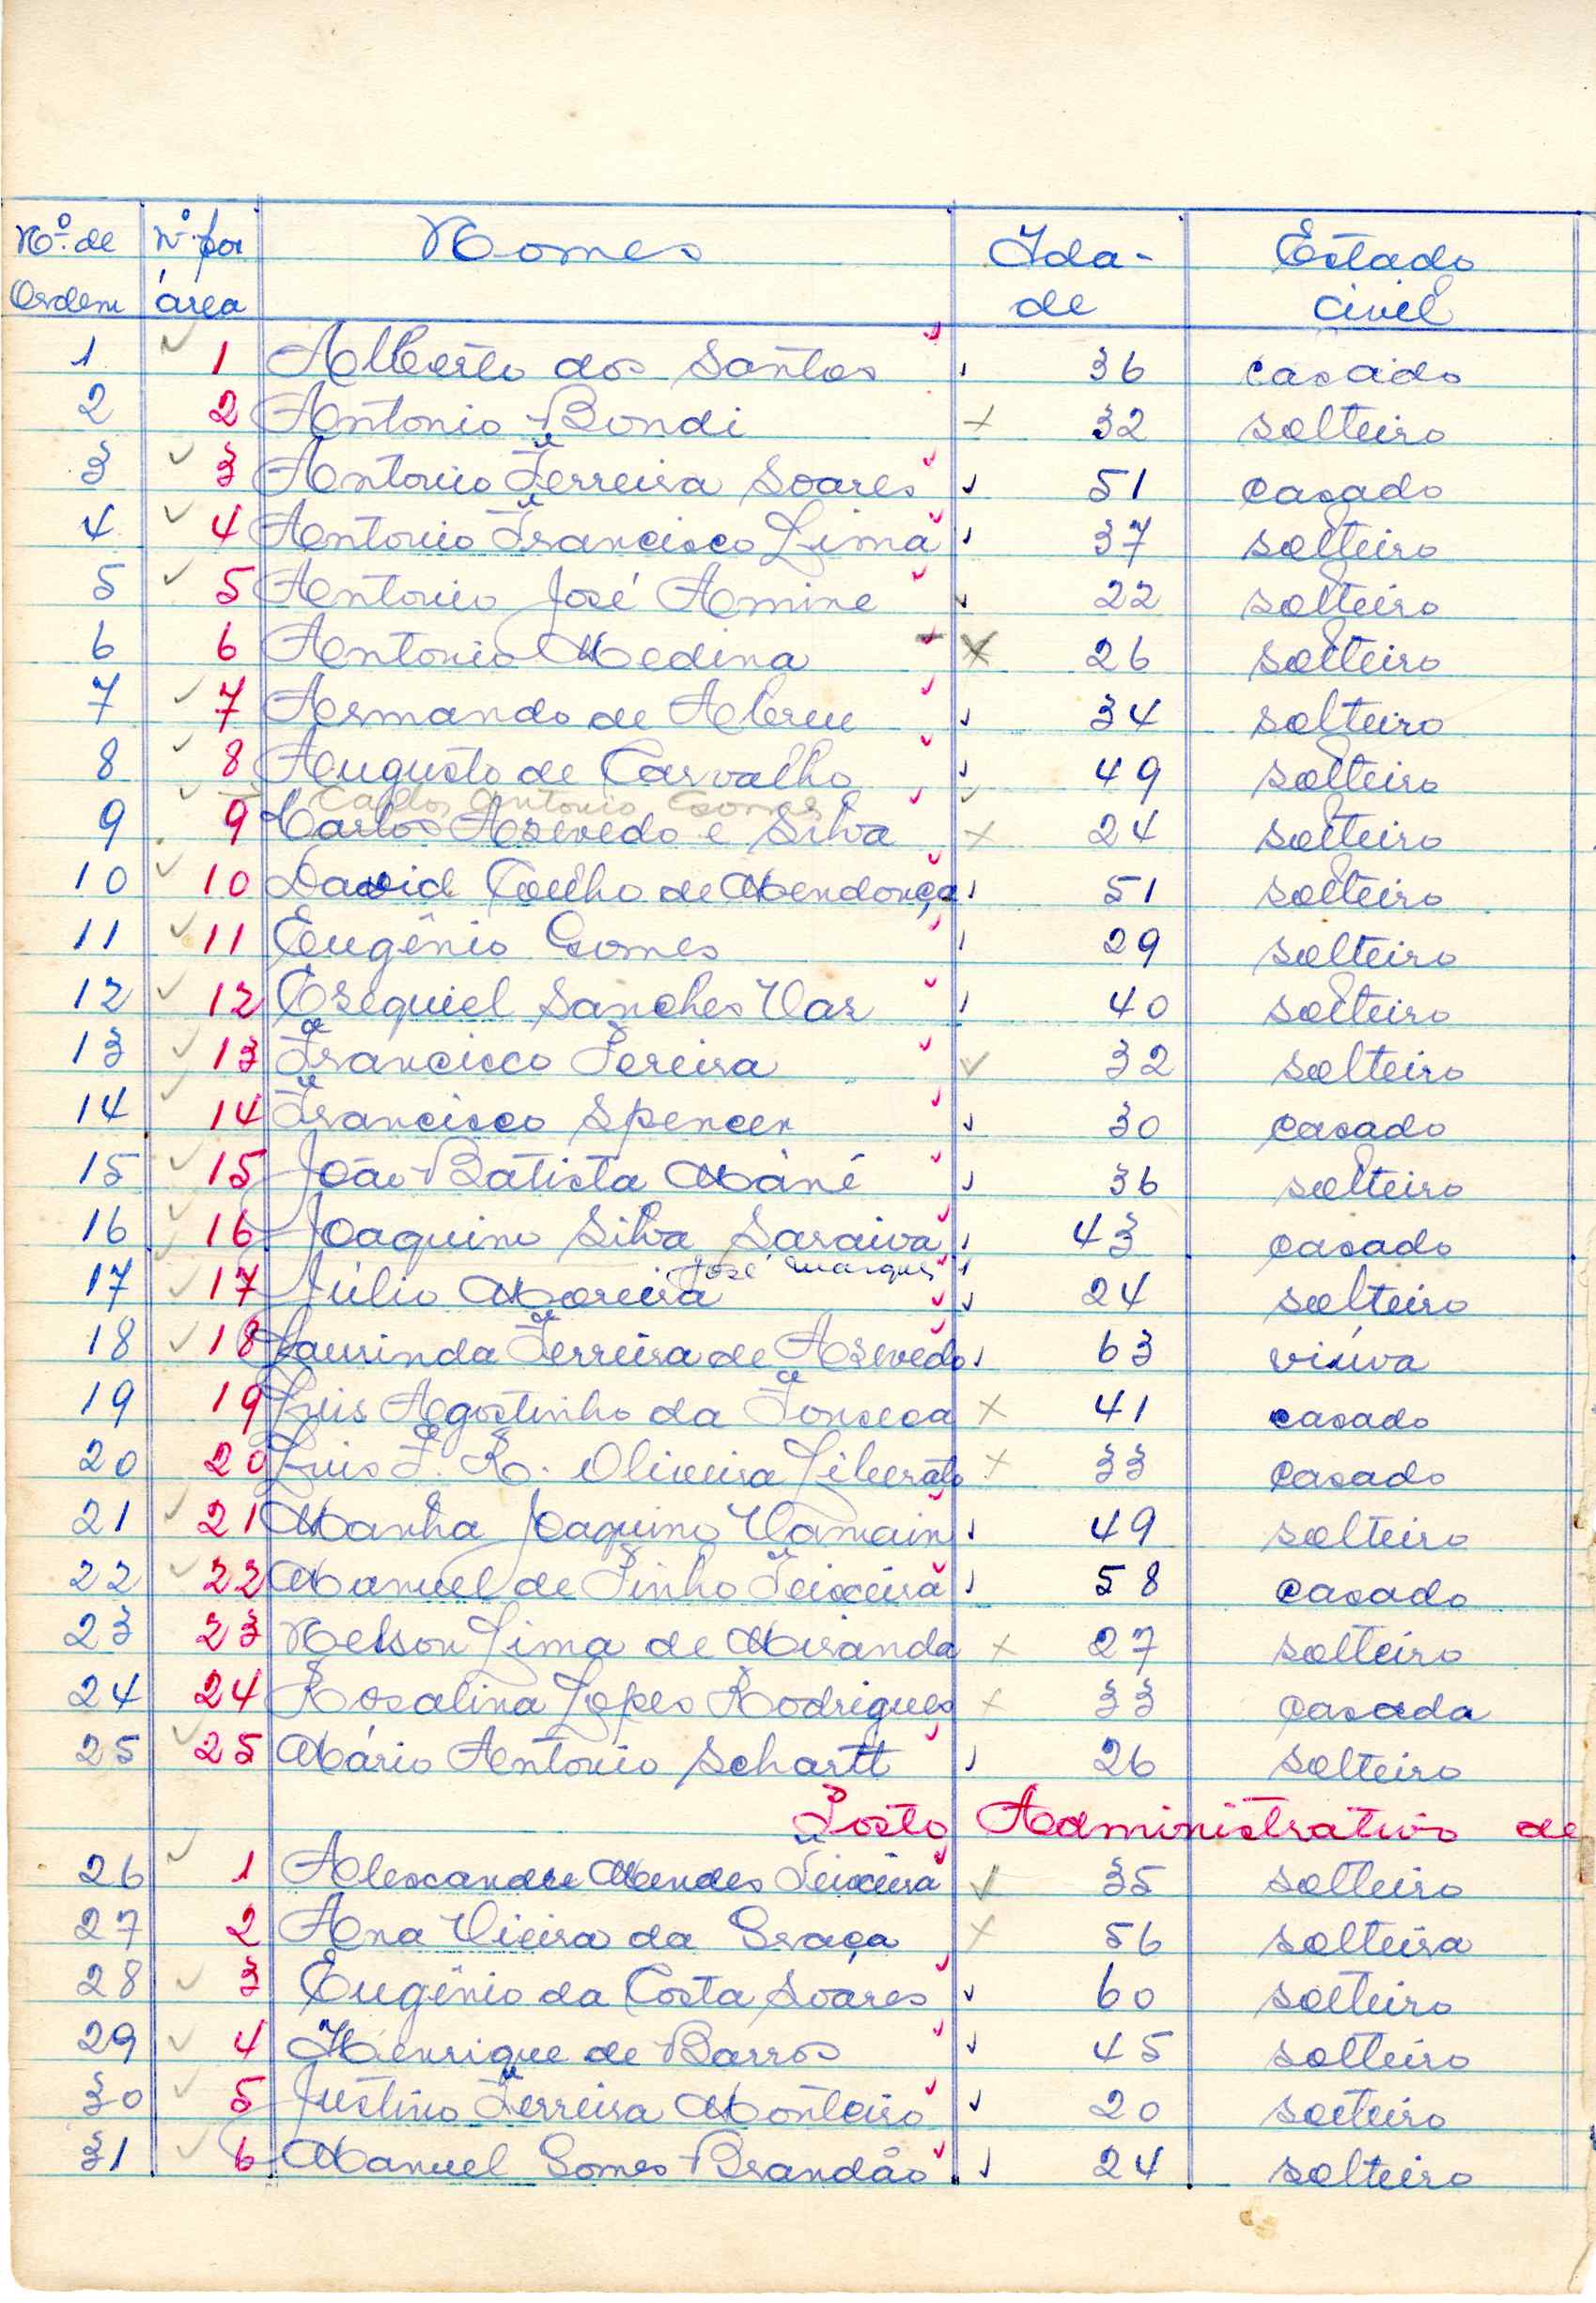 Nº de Ordem | Nº por área | Nomes | Ida-de | Estado civil
1 ✓ 1 Alberto dos Santos 36 casado
2 2 Antonio Bondi × 32 solteiro
3 ✓ 3 Antonio Ferreira Soares ✓ 51 casado
4 ✓ 4 Antonio Francisco Lima 37 solteiro
5 ✓ 5 Antonio José Amine ✓ 22 solteiro
6 6 Antonio Medina × 26 solteiro
7 ✓ 7 Armando de Abreu ✓ 34 solteiro
8 ✓ 8 Augusto de Carvalho ✓ 49 solteiro
Carlos Antonio Gomes ✓
9 9 Carlos Azevedo e Silva × 24 solteiro
10 ✓ 10 David Coelho de Mendonça 51 solteiro
11 ✓ 11 Eugênio Gomes 29 solteiro
12 ✓ 12 Ezequiel Sanches Vaz 40 solteiro
13 ✓ 13 Francisco Pereira ✓ 32 solteiro
14 ✓ 14 Francisco Spencer ✓ 30 casado
15 ✓ 15 João Batista Mané ✓ 36 solteiro
16 ✓ 16 Joaquim Silva Saraiva 43 casado
José Marques
17 ✓ 17 Júlio Moreira ✓ 24 solteiro
18 ✓ 18 Laurinda Ferreira de Azevedo 63 viúva
19 19 Luis Agostinho da Fonseca × 41 casado
20 20 Luis F. R. Oliveira Liberato × 33 casado
21 ✓ 21 Manha Joaquim 49 solteiro
22 ✓ 22 Manuel de Pinho Teixeira 58 casado
23 23 Nelson Lima de Miranda × 27 solteiro
24 24 Rosalina Lopes Rodrigues × 33 casada
25 ✓ 25 Mário Antonio Schartt 26 solteiro
Posto Administrativo de
26 ✓ 1 Alexandre Mendes Teixeira ✓ 35 solteiro
27 2 Ana Vieira da Graça × 56 solteira
28 ✓ 3 Eugênio da Costa Soares ✓ 60 solteiro
29 ✓ 4 Henrique de Barros ✓ 45 solteiro
30 ✓ 5 Justino Ferreira Monteiro ✓ 20 solteiro
31 ✓ 6 Manuel Gomes Brandão ✓ 24 solteiro